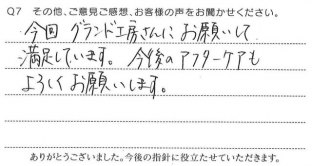 Q7 その他、ご意見ご感想、お客様の声をお聞かせください。
今回 グランド工房さんに お願いして
満足しています。 今後のアフターケアも
よろしくお願いします。
ありがとうございました。今後の指針に役立たせていただきます。